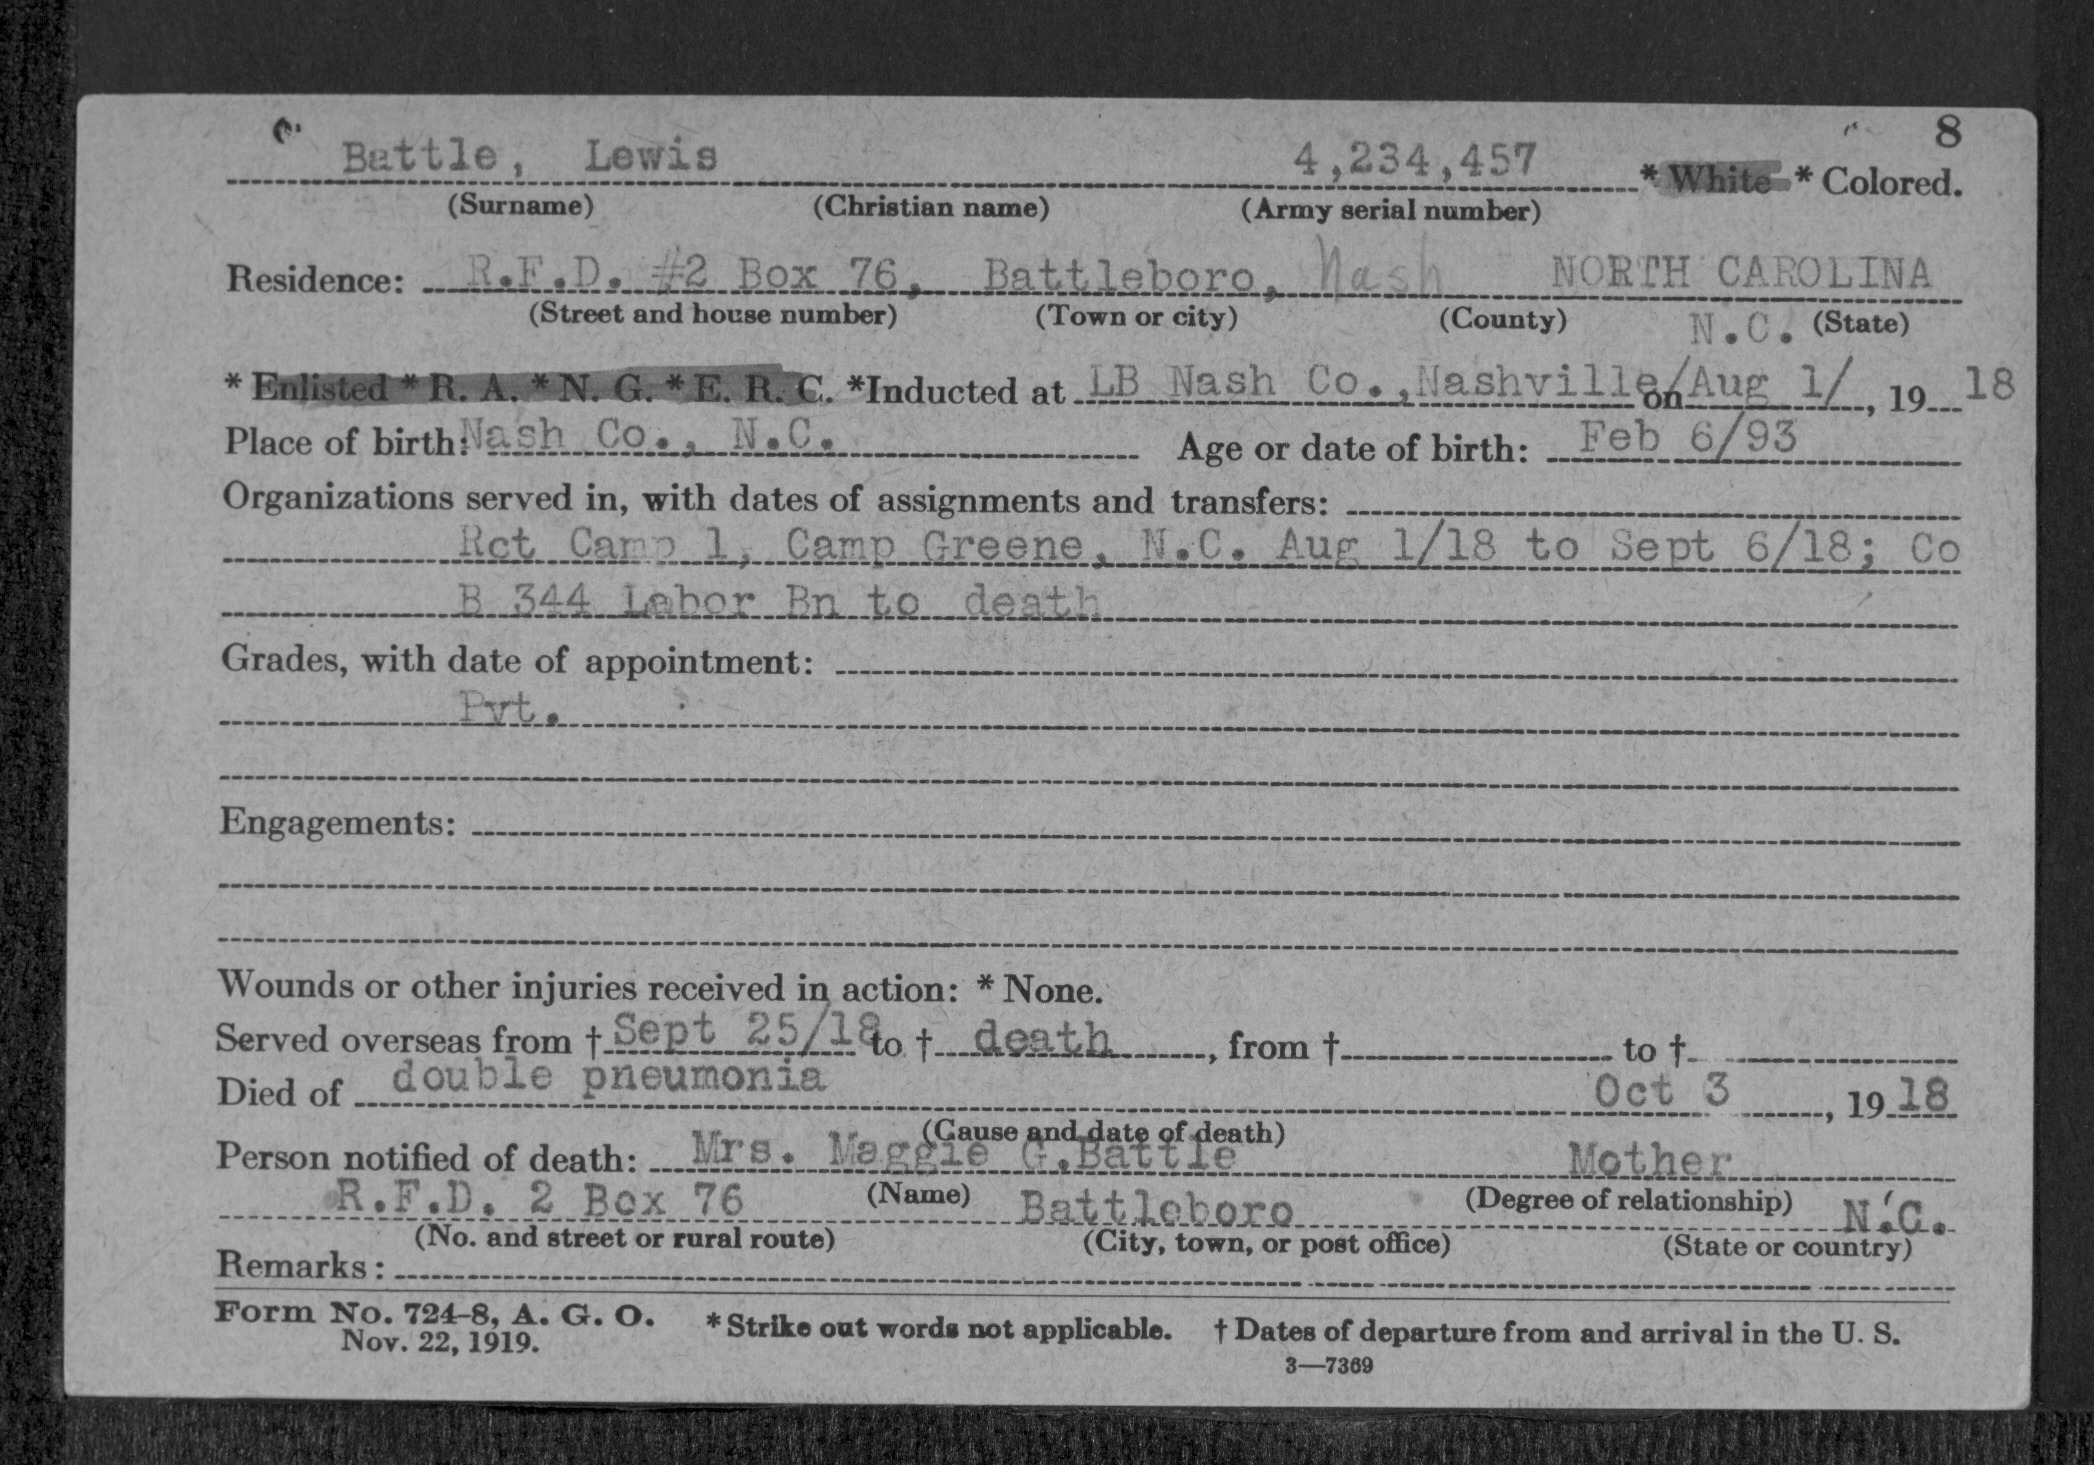 8
Battle, Lewis 4,234,457 * White * Colored.
(Surname) (Christian name) (Army serial number)
Residence: R.F.D. #2 Box 76, Battleboro, Nash NORTH CAROLINA
(Street and house number) (Town or city) (County) N.C. (State)
* Enlisted * R. A. * N. G. * E. R. C. *Inducted at LB Nash Co., Nashville on Aug 1/, 19 18
Place of birth: Nash Co., N.C. Age or date of birth: Feb 6/93
Organizations served in, with dates of assignments and transfers:
Rct Camp 1, Camp Greene, N.C. Aug 1/18 to Sept 6/18; Co
B 344 Labor Bn to death
Grades, with date of appointment:
Pvt.
Engagements:
Wounds or other injuries received in action: * None.
Served overseas from † Sept 25/18 to † death, from † to †
Died of double pneumonia Oct 3, 19 18
(Cause and date of death)
Person notified of death: Mrs. Maggie G.Battle Mother
(Name) (Degree of relationship)
R.F.D. 2 Box 76 Battleboro N.C.
(No. and street or rural route) (City, town, or post office) (State or country)
Remarks:
Form No. 724-8, A. G. O. * Strike out words not applicable. † Dates of departure from and arrival in the U. S.
Nov. 22, 1919.
3—7369